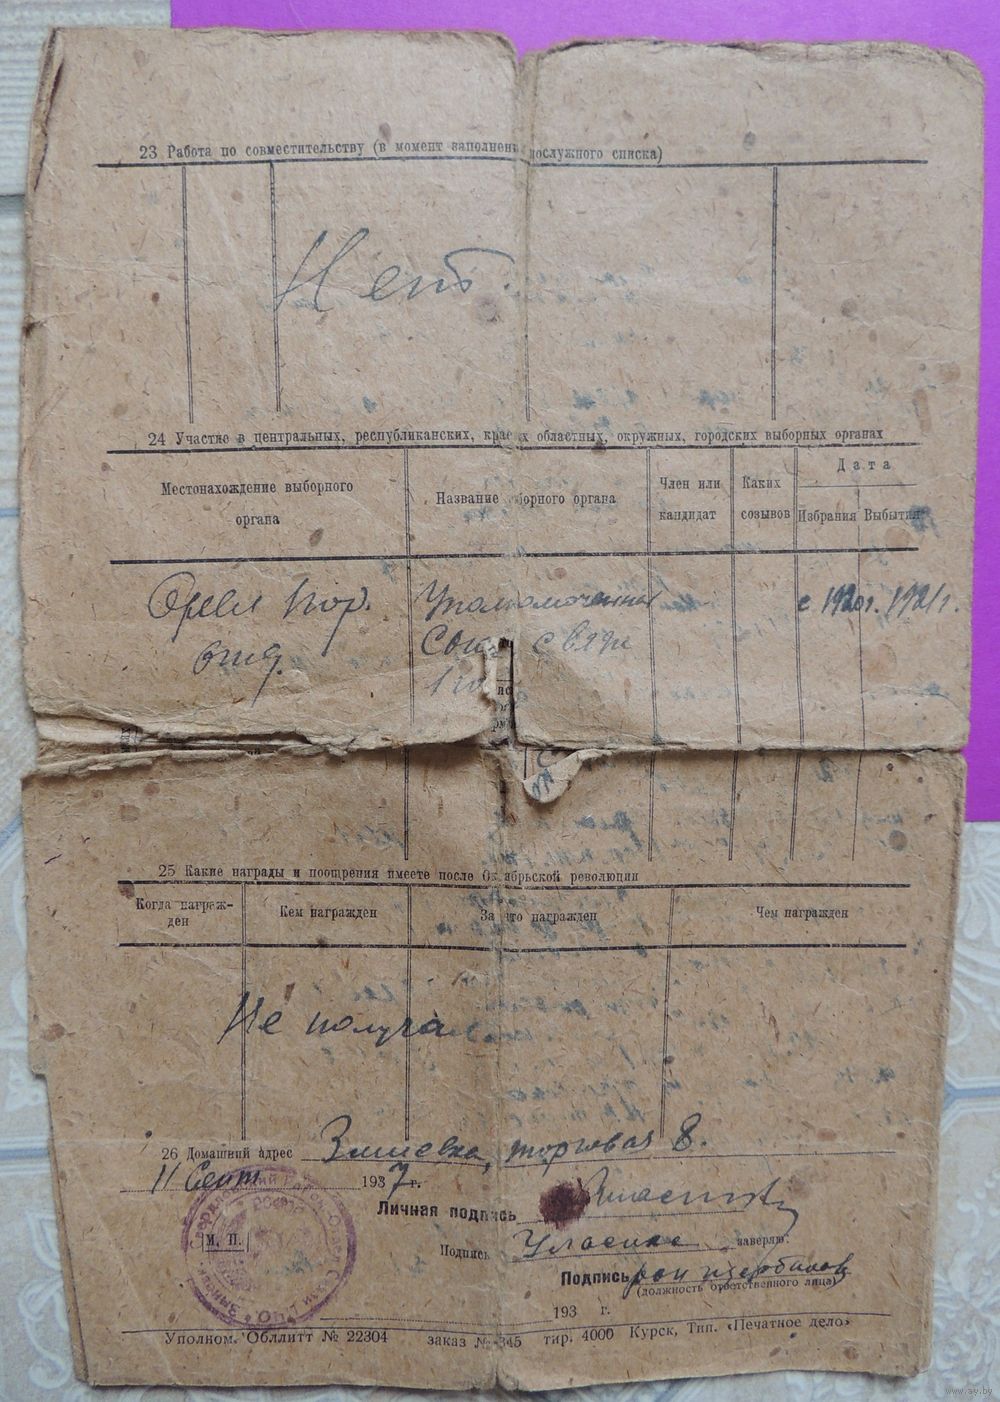 23 Работа по совместительству (в момент заполнен послужного списка)
Нет.
24 Участие в центральных, республиканских, крае х областных, окружных, городских выборных органах
Местонахождение выборного органа
Название борного органа
Член или кандидат
Каких созывов
Дата
Избрания Выбытия
Орел
отд.
Уполномоченный
Союз связи
с 1920г. 1921г.
25 Какие награды и поощрения имеете после Ок абрьской революции
Когда награж-
ден
Кем награжден
За что награжден
Чем награжден
Не получал
26 Домашний адрес Змиевка, торговая 8.
11 Сент 1937 г.
Личная подпись
М. П.
Подпись заверяю:
Подпись
(должность ответственного лица)
193 г.
Уполном. Обллитт № 22304 заказ № 345 тир. 4000 Курск, Тип. «Печатное дело»
www.ay.by